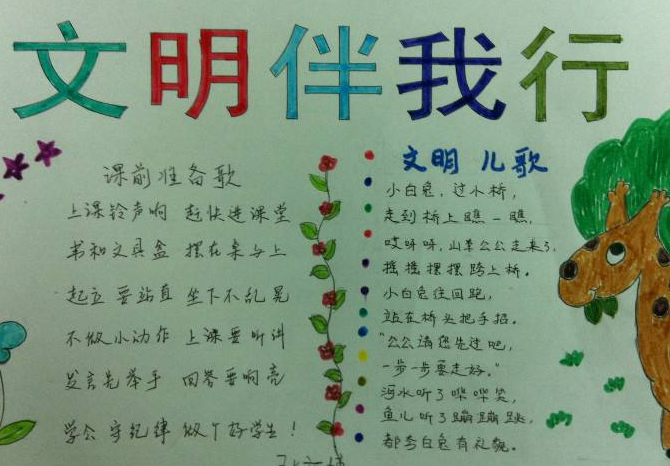 文明伴我行
课前准备歌
上课铃声响 赶快进课堂
书和文具盒 摆在桌与上
起立要站直 坐下不乱晃
不做小动作 上课要听讲
发言先举手 回答要响亮
学会守纪律 做个好学生！
文明儿歌
小白兔，过小桥，
走到桥上瞧一瞧，
哎呀呀，山羊公公走来了，
摇摇摆摆跨上桥。
小白兔往回跑，
站在桥头把手招。
"公公请您先过吧，
一步一步要走好。"
河水听了哗哗笑，
鱼儿听了蹦蹦跳，
都夸白兔有礼貌。